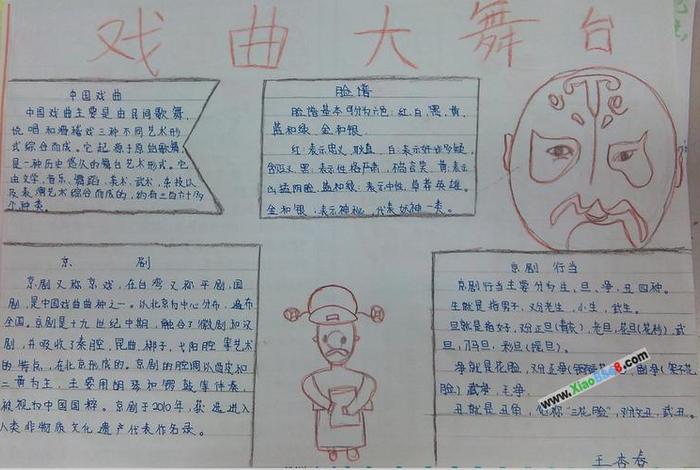 戏曲大舞台
中国戏曲
中国戏曲主要是由民间歌舞、
说唱和滑稽戏三种不同艺术形
式综合而成。它起源于原始歌舞,
是一种历史悠久的舞台艺术形式。它
由文学、音乐、舞蹈、美术、武术、杂技以
及表演艺术综合而成的,约有三百六十多
个种类。
脸谱
脸谱基本分为六色:红、白、黑、黄、
蓝和绿、金和银.
红:表示忠义、耿直,白:表示奸诈多疑,
黑:表示性格严肃,不苟言笑,黄:表示
凶猛阴险,蓝和绿:表示中性,草莽英雄。
金和银:表示神秘,代表妖神一类。
京 剧
京剧又称京戏,在台湾又称平剧、国
剧,是中国戏曲曲种之一。以北京为中心分布,遍布
全国。京剧是十九世纪中期,融合了徽剧和汉
剧,并吸收了秦腔、昆曲、梆子、弋阳腔等艺术
的特点,在北京形成的。京剧的腔调以西皮和
二黄为主,主要用胡琴和锣鼓等伴奏,
被视为中国国粹。京剧于2010年,获选进入
人类非物质文化遗产代表作名录。
京剧 行当
京剧行当主要分为生、旦、净、丑四种。
生就是指男子,分老生、小生、武生。
旦就是指女子,分正旦(青衣)、老旦、花旦(花衫)、武
旦、刀马旦、彩旦(摇旦)。
净就是花脸,分正净 副净(架子花
脸)武净、毛净。
丑就是丑角,也称"三花脸",分文丑、武丑。
王杏春
www.XiaoBa68.com